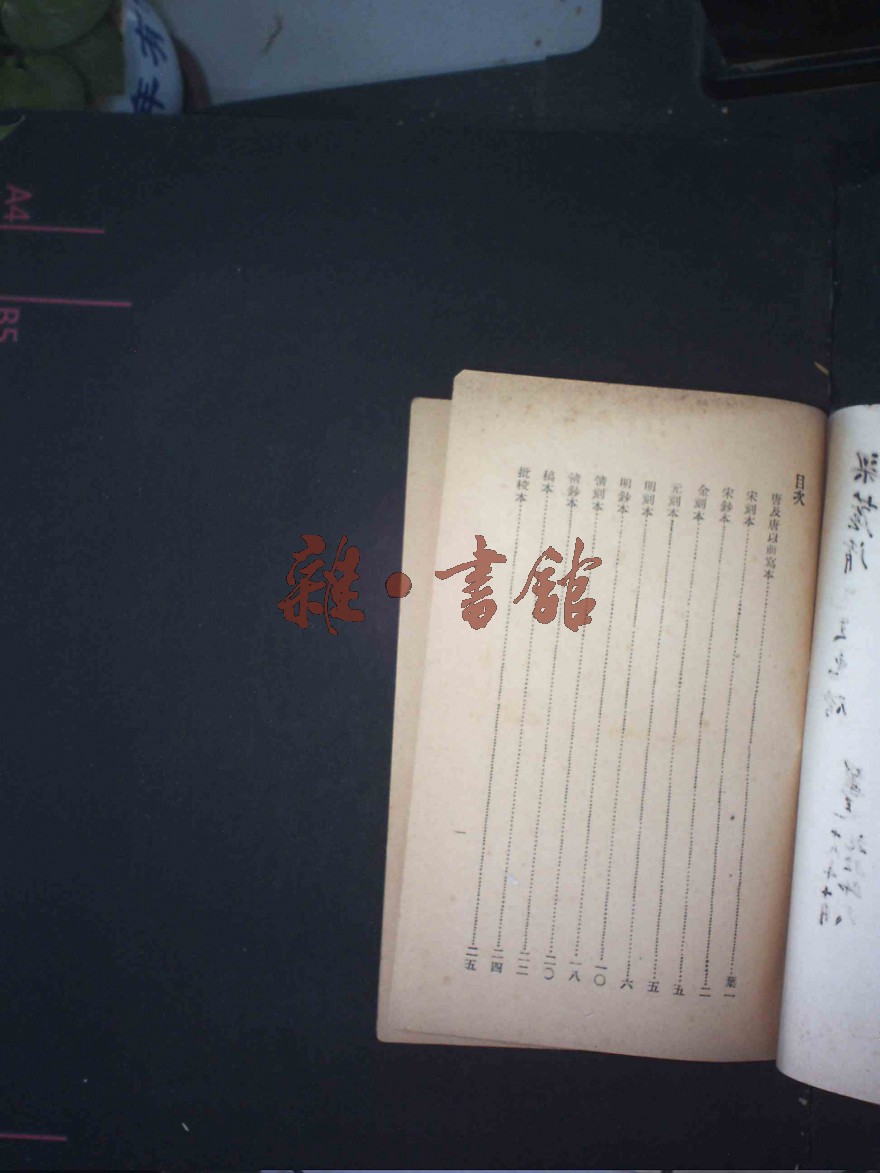 A4
B5
目次
唐及唐以前寫本……葉一
宋刻本……二
宋鈔本……五
金刻本……五
元刻本……六
明刻本……一〇
明鈔本……一八
清刻本……二〇
清鈔本……二二
稿本……二四
批校本……二五
一
雜·書館